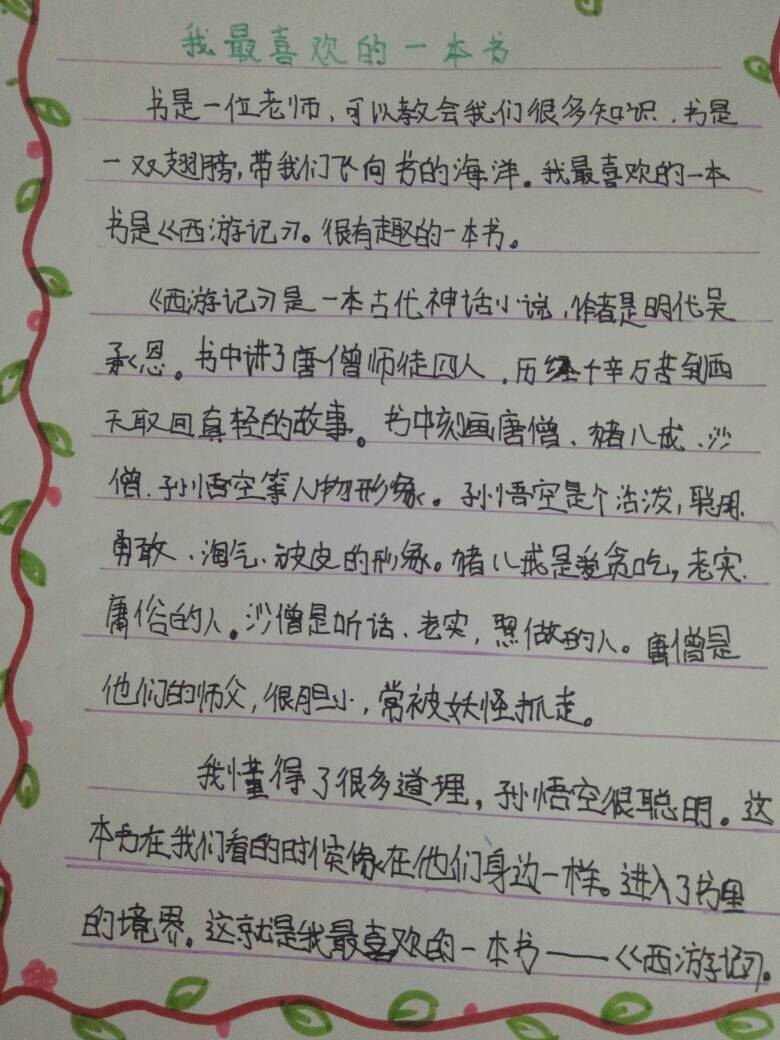 我最喜欢的一本书
书是一位老师，可以教会我们很多知识，书是
一双翅膀，带我们飞向书的海洋。我最喜欢的一本
书是《西游记》。很有趣的一本书。
《西游记》是一本古代神话小说，作者是明代吴
承恩。书中讲了唐僧师徒四人，历经千辛万苦到西
天取回真轻的故事。书中刻画唐僧、猪八戒、沙
僧、孙悟空等人物形象。孙悟空是个活泼，聪明、
勇敢、淘气、被皮的形象。猪八戒是爱贪吃，老实、
庸俗的人。沙僧是听话、老实，照做的人。唐僧是
他们的师父，很胆小，常被妖怪抓走。
我懂得了很多道理，孙悟空很聪明。这
本书在我们看的时候像在他们身边一样。进入了书里
的境界。这就是我最喜欢的一本书——《西游记》。